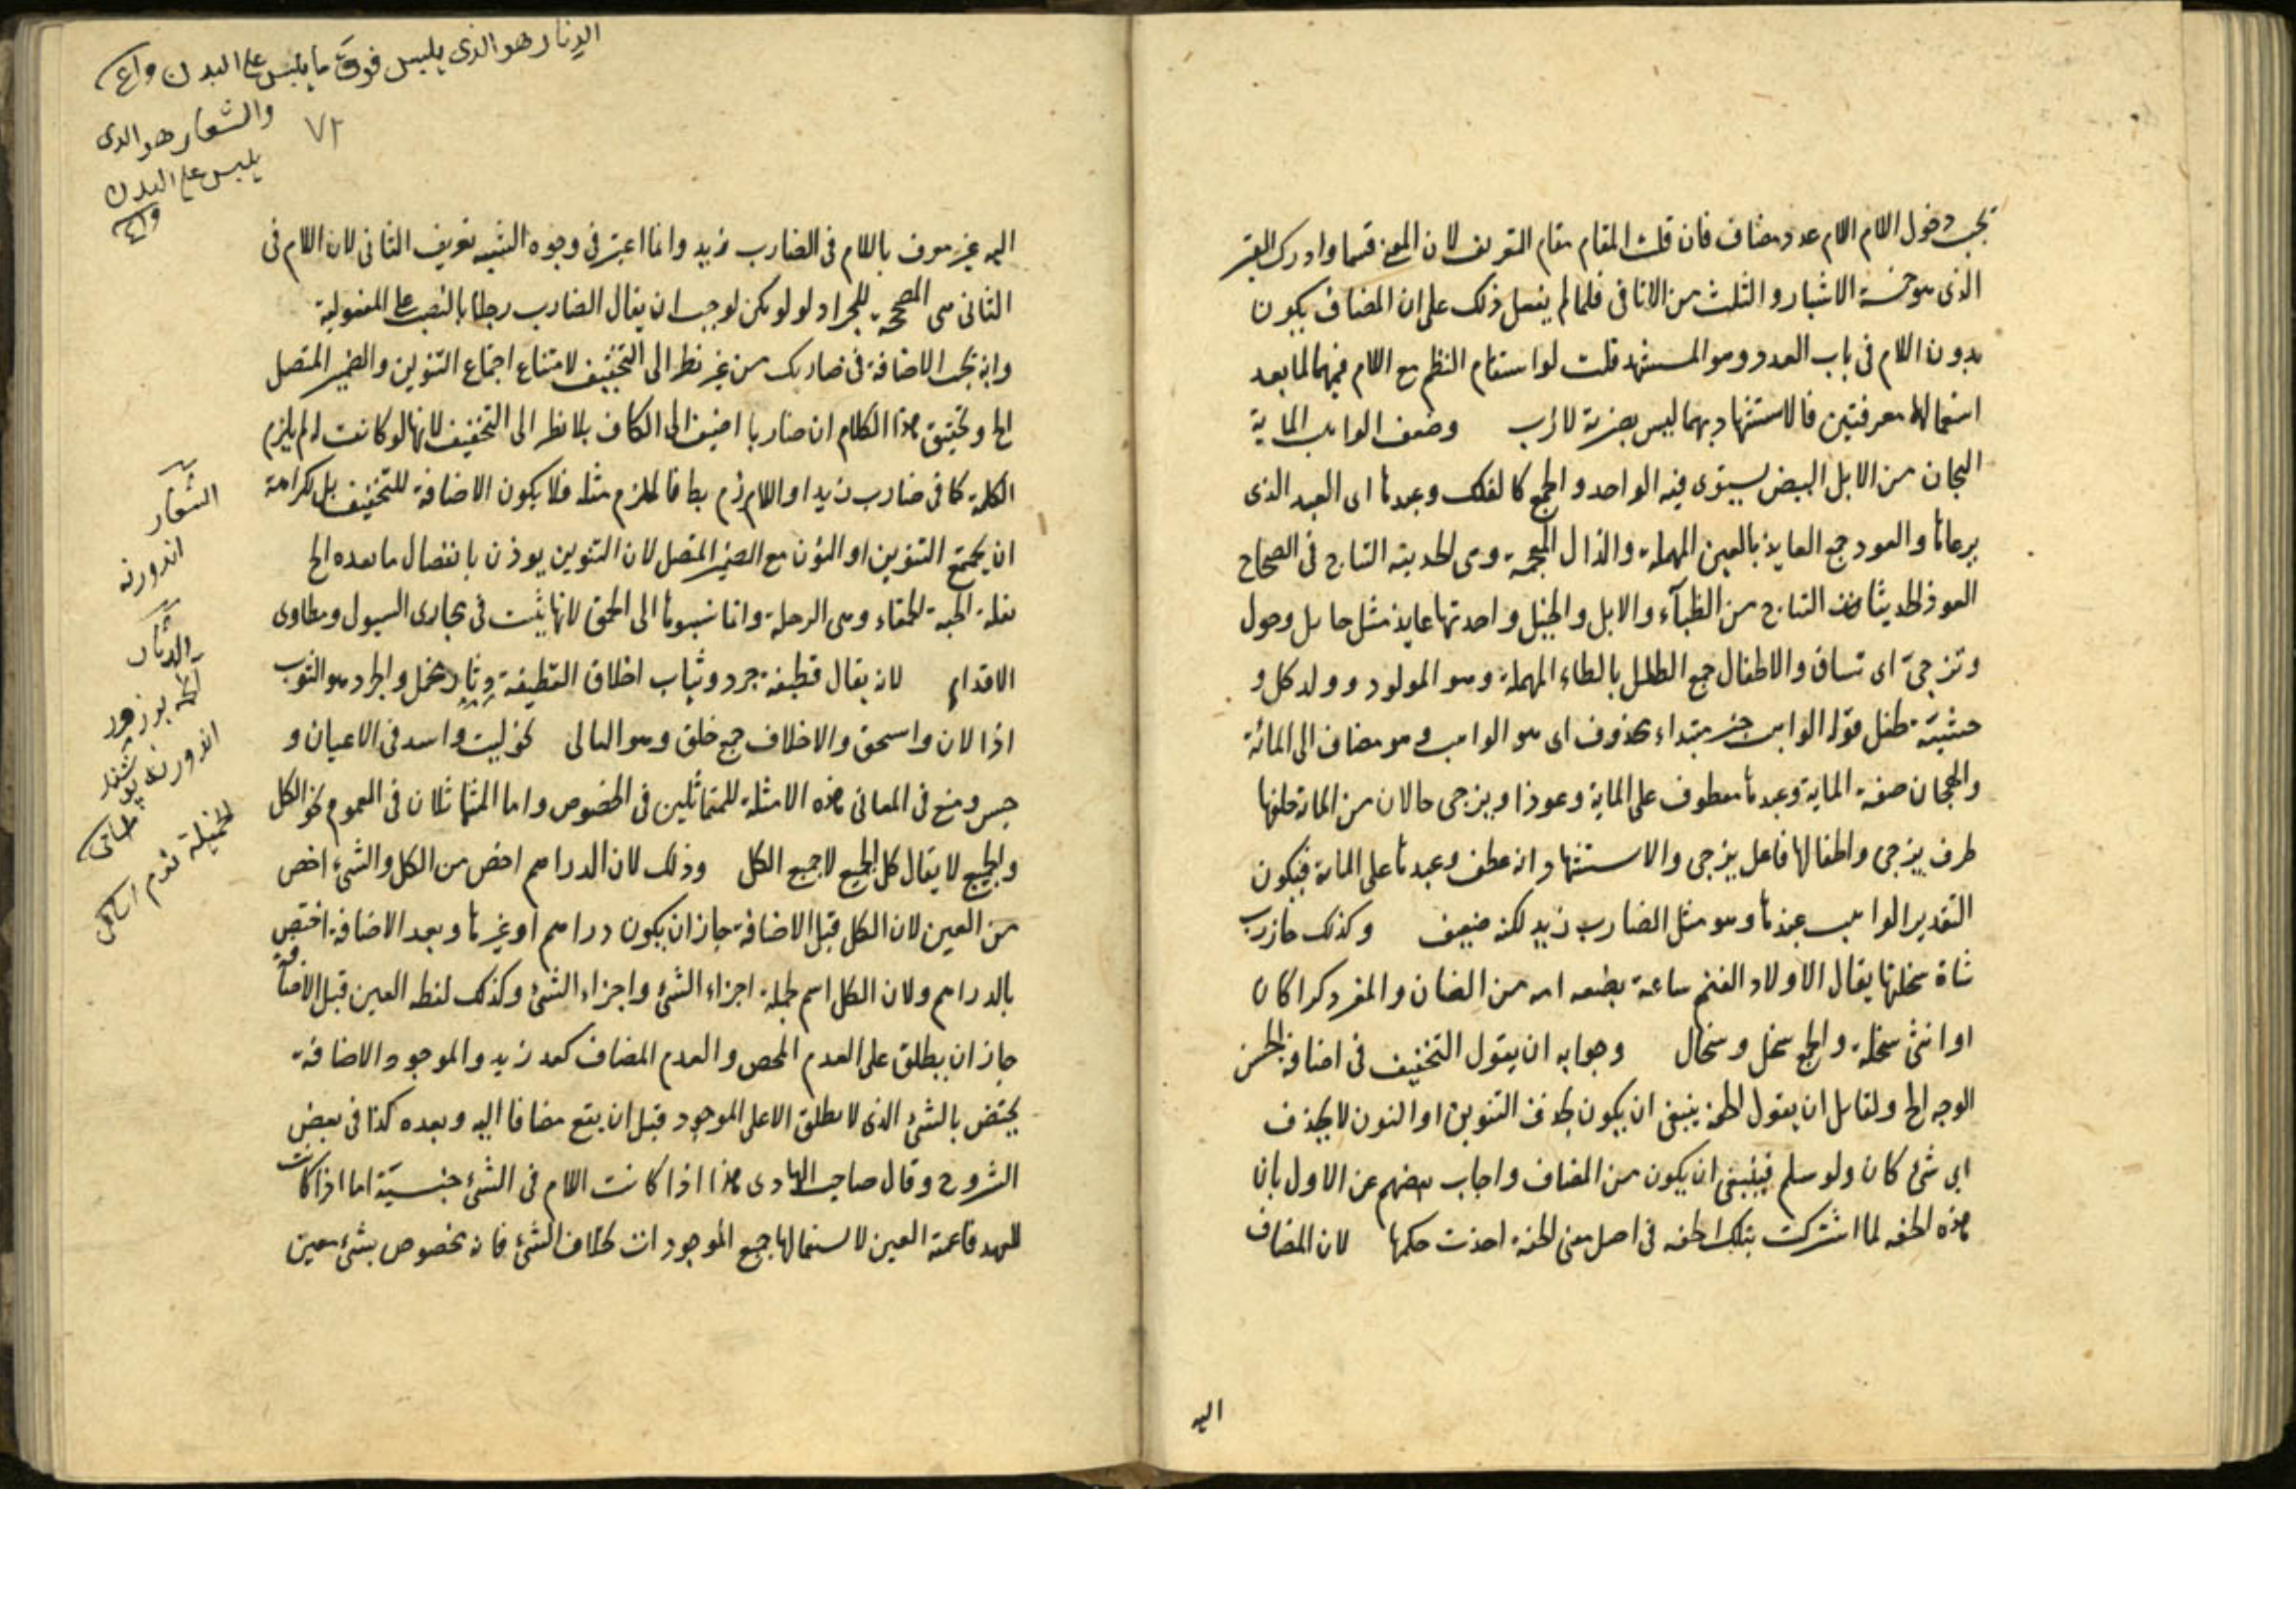 دخول اللام عدد مضاف فان قلت المقام مقام التعريف لان المعنى وادرك
الذى هو خمسة الاشبار والثلث من الاثافى فلما لم يفعل ذلك على ان المضاف يكون
بدون اللام فى باب العدد وهو المستشهد قلت لو استقام النظم مع اللام فيهما لما بعد
استعمالها معرفتين فالاستشهاد بهما ليس بضربة لازب وضعف الواهب الماية
الهجان من الابل البيض يستوى فيه الواحد والجمع كالفلك وعبدها اى العبد الذى
يرعاها والعوذ جمع العايذ بالعين المهملة والذال المعجمة وهى الحديثة النتاج فى الصحاح
العوذ الحديثات النتاج من الظبآء والابل والخيل واحدتها عايذ مثل حايل وحول
وتزجى اى تساق والاطفال جمع الطفل بالطاء المهملة وهو المولود وولد كل
وحشية طفل قوله الواهب خبر مبتداء محذوف اى هو الواهب وهو مضاف الى المائة
والهجان صفة الماية وعبدها معطوف على الماية وعوذا ويزجى حالان من الماية خلفها
ظرف يزجى واطفالها فاعل يزجى والاستشهاد انه عطف وعبدها على الماية فيكون
التقدير الواهب عبدها وهو مثل الضارب زيد لكنه ضعيف وكذلك جاز رب
شاة سخلتها يقال لاولاد الغنم ساعة يضعه امه من الضان والمعز ذكرا كان
او انثى سخلة والجمع سخل وسخال وجوابه ان يقول التخفيف فى اضافة الحسن
الوجه الخ ولقايل ان يقول الخفة ينبغى ان يكون بحذف التنوين او النون لا بحذف
اى شئ كان ولو سلم فينبغى ان يكون من المضاف واجاب بعضهم عن الاول بان
هذه الخفة لما اشتركت بتلك الخفة فى اصل معنى الخفة اخذت حكمها لان المضاف
اليه
الدثار هو الذى يلبس فوق ما يلبس على البدن
والشعار هو الذى
يلبس على البدن
٧٢
اليه غير معرف باللام فى الضارب زيد وانما اعتبر فى وجوه الشبه تعريف الثانى لان اللام فى
الثانى هى المصححة للجر اذ لو لم يكن لوجب ان يقال الضارب رجلا بالنصب على المفعولية
وانه تجب الاضافة فى ضاربك من غير نظر الى التخفيف لامتناع اجتماع التنوين والضمير المتصل
الخ وتحقيق هذا الكلام ان ضاربا اضيف الى الكاف بلا نظر الى التخفيف لانها لو كانت له لم يلزم
الكلمة كما فى ضارب زيدا واللازم بط فالملزوم مثله فلا يكون الاضافة للتخفيف بل لكراهة
ان يجتمع التنوين او النون مع الضمير المتصل لان التنوين يوذن بانفصال ما بعده الخ
بقلة الحبة الحمقاء وهى الرجلة وانما نسبوها الى الحمق لانها تنبت فى مجارى السيول ومطاوى
الاقدام لانه يقال قطيفة جرد وثياب اخلاق القطيفة دثار مخمل والجرد هو الثوب
اذا لان وانسحق والاخلاق جمع خلق وهو البالى نحو ليث واسد فى الاعيان و
حبس ومنع فى المعانى هذه الامثلة للمتماثلين فى الخصوص واما المتماثلان فى العموم نحو الكل
والجميع لا يقال كل الجميع لا جميع الكل وذلك لان الدراهم اخص من الكل والشئ اخص
من العين لان الكل قبل الاضافة جاز ان يكون دراهم او غيرها وبعد الاضافة اختص
بالدراهم ولان الكل اسم لجملة اجزاء الشئ واجزاء الشئ وكذلك لفظ العين قبل الاضافة
جاز ان يطلق على العدم المحض والعدم المضاف كعدم زيد والموجود والاضافة
يختص بالشئ الذى لا يطلق الا على الموجود قبل ان يقع مضافا اليه وبعده كذا فى بعض
الشروح وقال صاحب الهادى هذا اذا كانت اللام فى الشئ جنسية اما اذا كانت
للعهد فاعمية العين لاستعمالها جميع الموجودات بخلاف الشئ فانه مخصوص بشئ معين
الشعار
الدثار